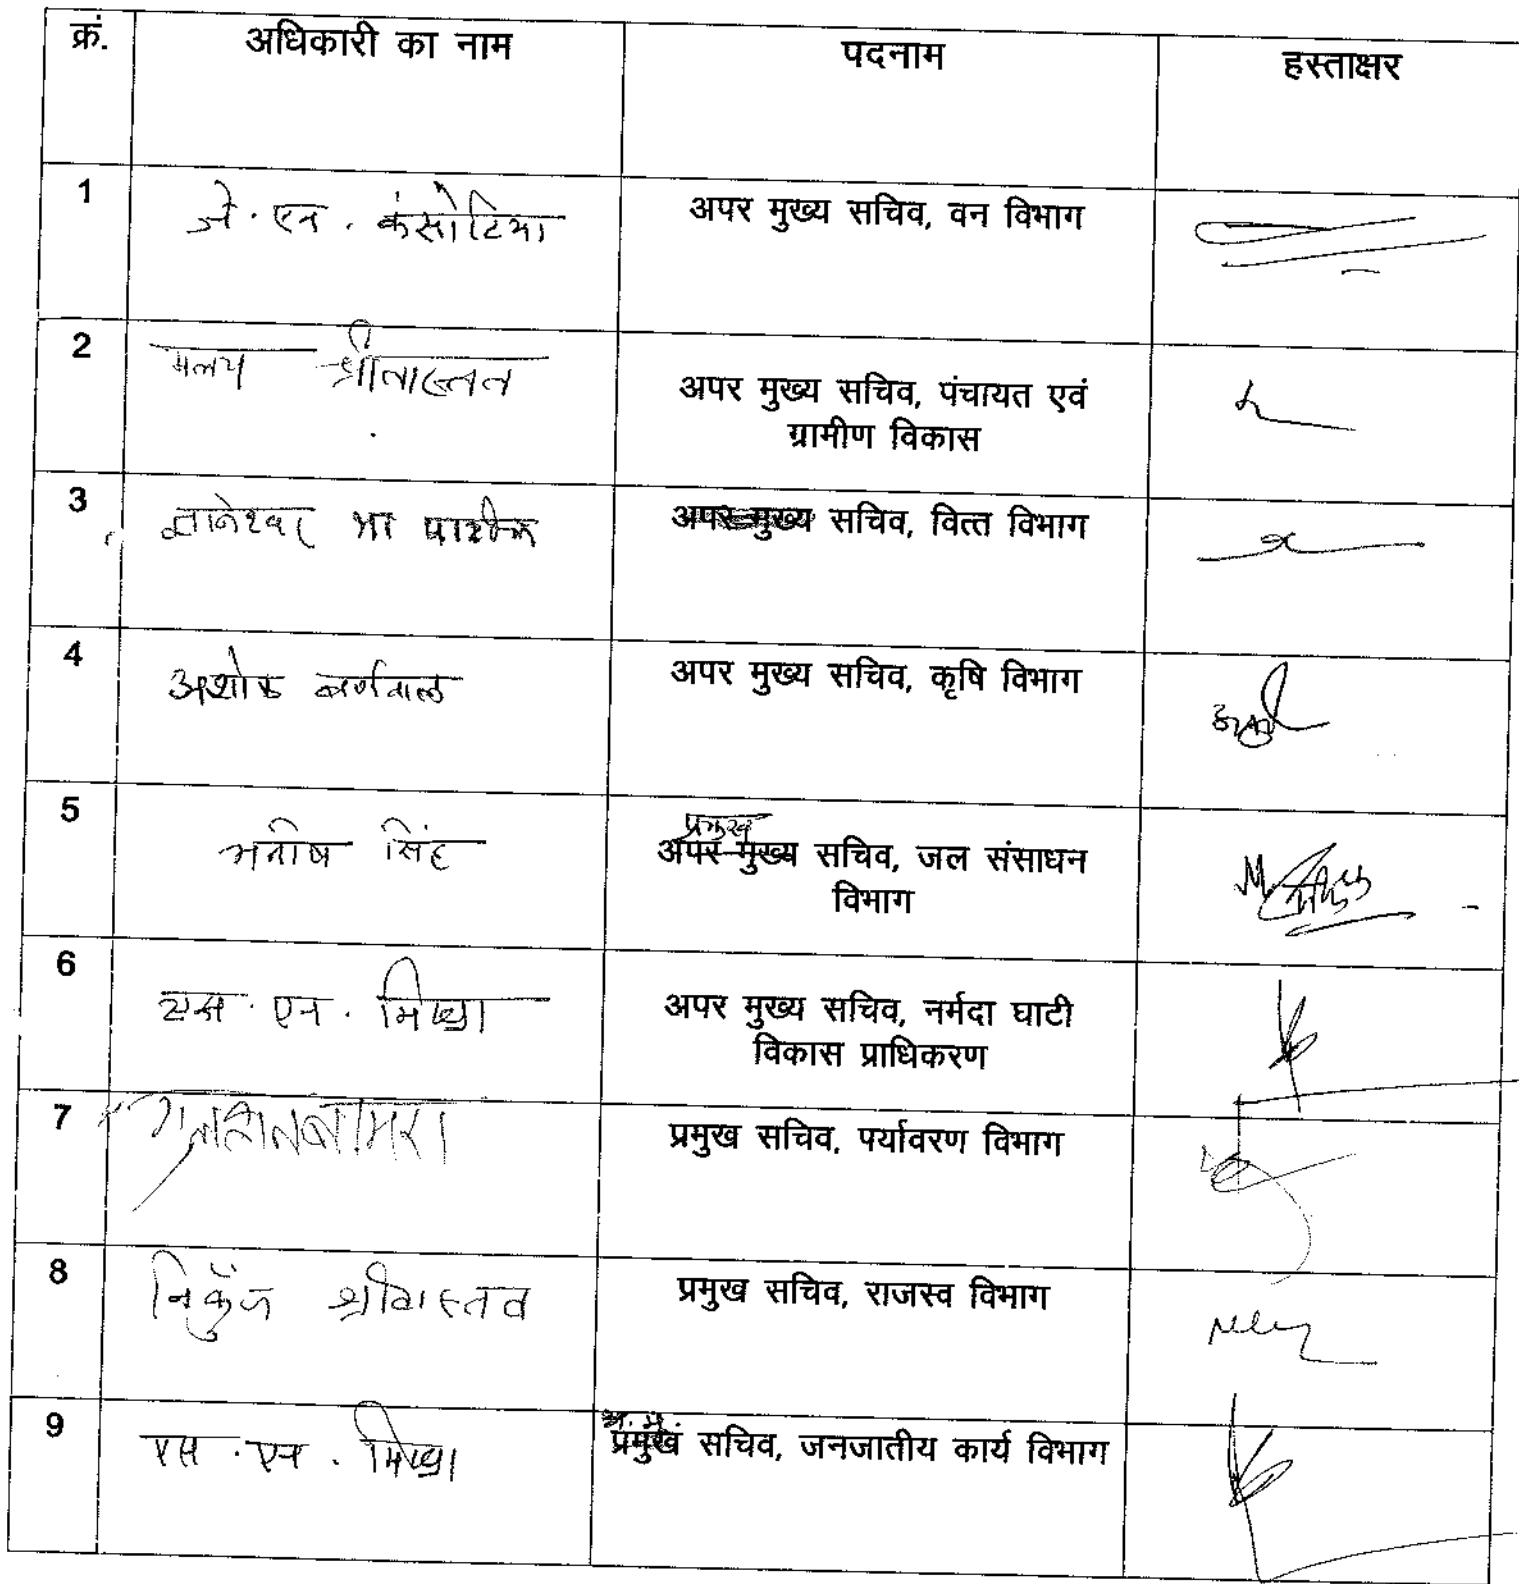 क्रं. अधिकारी का नाम पदनाम हस्ताक्षर
1 जे. एन. कंसोटिया अपर मुख्य सचिव, वन विभाग
2 मलय श्रीवास्तव अपर मुख्य सचिव, पंचायत एवं
ग्रामीण विकास
3 ज्ञानेश्वर पाटील अपर मुख्य सचिव, वित्त विभाग
4 अशोक बर्णवाल अपर मुख्य सचिव, कृषि विभाग
प्रमुख
5 मनीष सिंह अपर मुख्य सचिव, जल संसाधन
विभाग
6 एस. एन. मिश्रा अपर मुख्य सचिव, नर्मदा घाटी
विकास प्राधिकरण
7 गुलशन बामरा प्रमुख सचिव, पर्यावरण विभाग
8 निकुँज श्रीवास्तव प्रमुख सचिव, राजस्व विभाग
अ. मु.
9 एस. एन. मिश्रा प्रमुख सचिव, जनजातीय कार्य विभाग